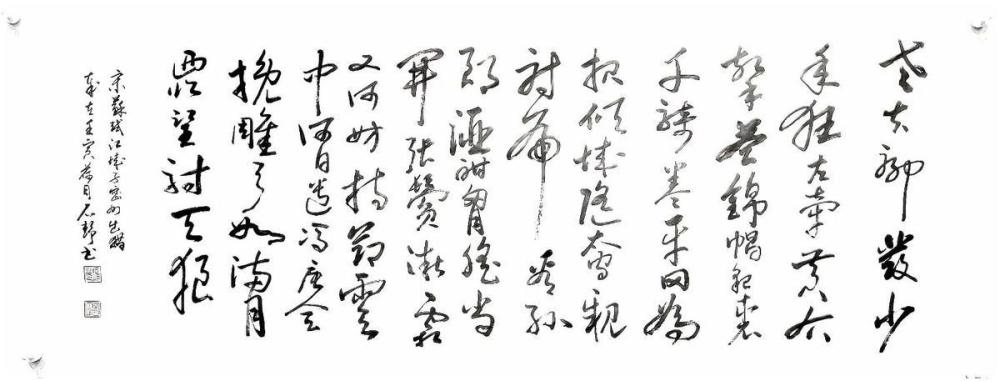 老夫聊發少
年狂左牽黃右
擎蒼錦帽貂裘
千騎卷平岡為
報傾城隨太守親
射虎看孫
郎酒酣胸膽尚
開張鬢微霜
又何妨持節雲
中何日遣馮唐會
挽雕弓如滿月
西北望射天狼
宋蘇軾江城子密州出獵
歲在壬寅荷月石書